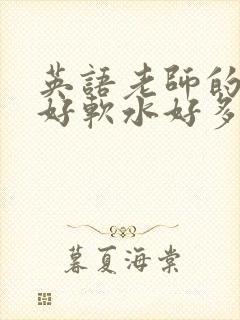 英語老師的
好軟水好多
暮夏海棠